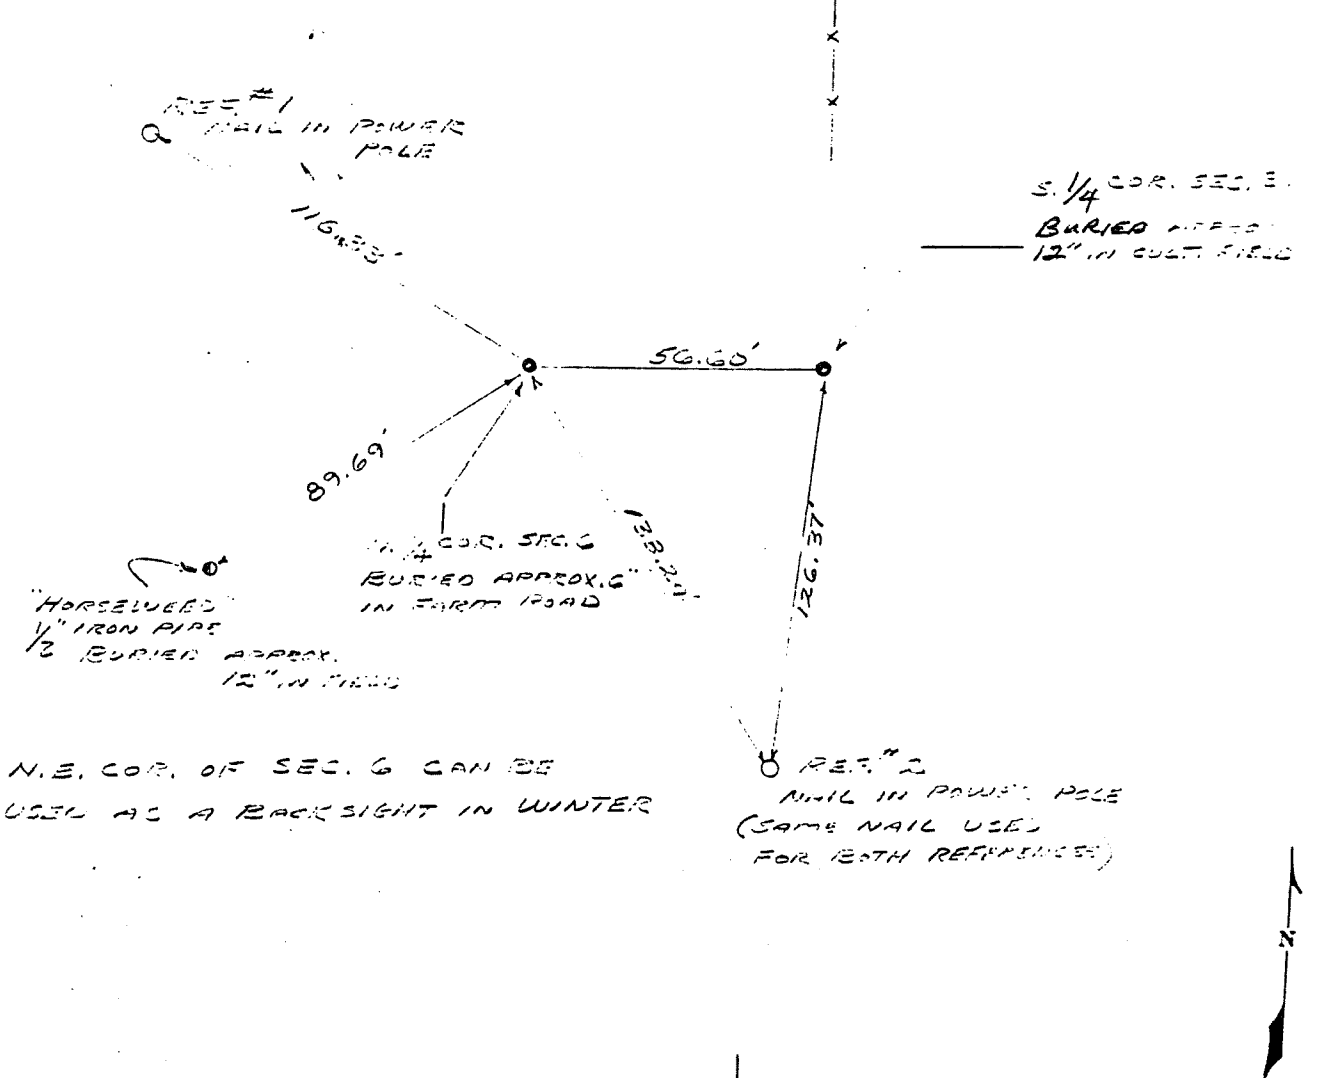 REF. #1
NAIL IN POWER
POLE
116.33'
S. 1/4 COR. SEC. 3
BURIED
12" IN CULT. FIELD
56.60'
89.69'
1/4 COR. SEC. 6
BURIED APPROX. 6"
IN FARM ROAD
126.37'
"HORSEWEED"
1/2" IRON PIPE
BURIED APPROX.
12" IN FIELD
N.E. COR. OF SEC. 6 CAN BE
USED AS A BACKSIGHT IN WINTER
REF. #2
NAIL IN POWER POLE
(SAME NAIL USED
FOR BOTH REFERENCES)
N